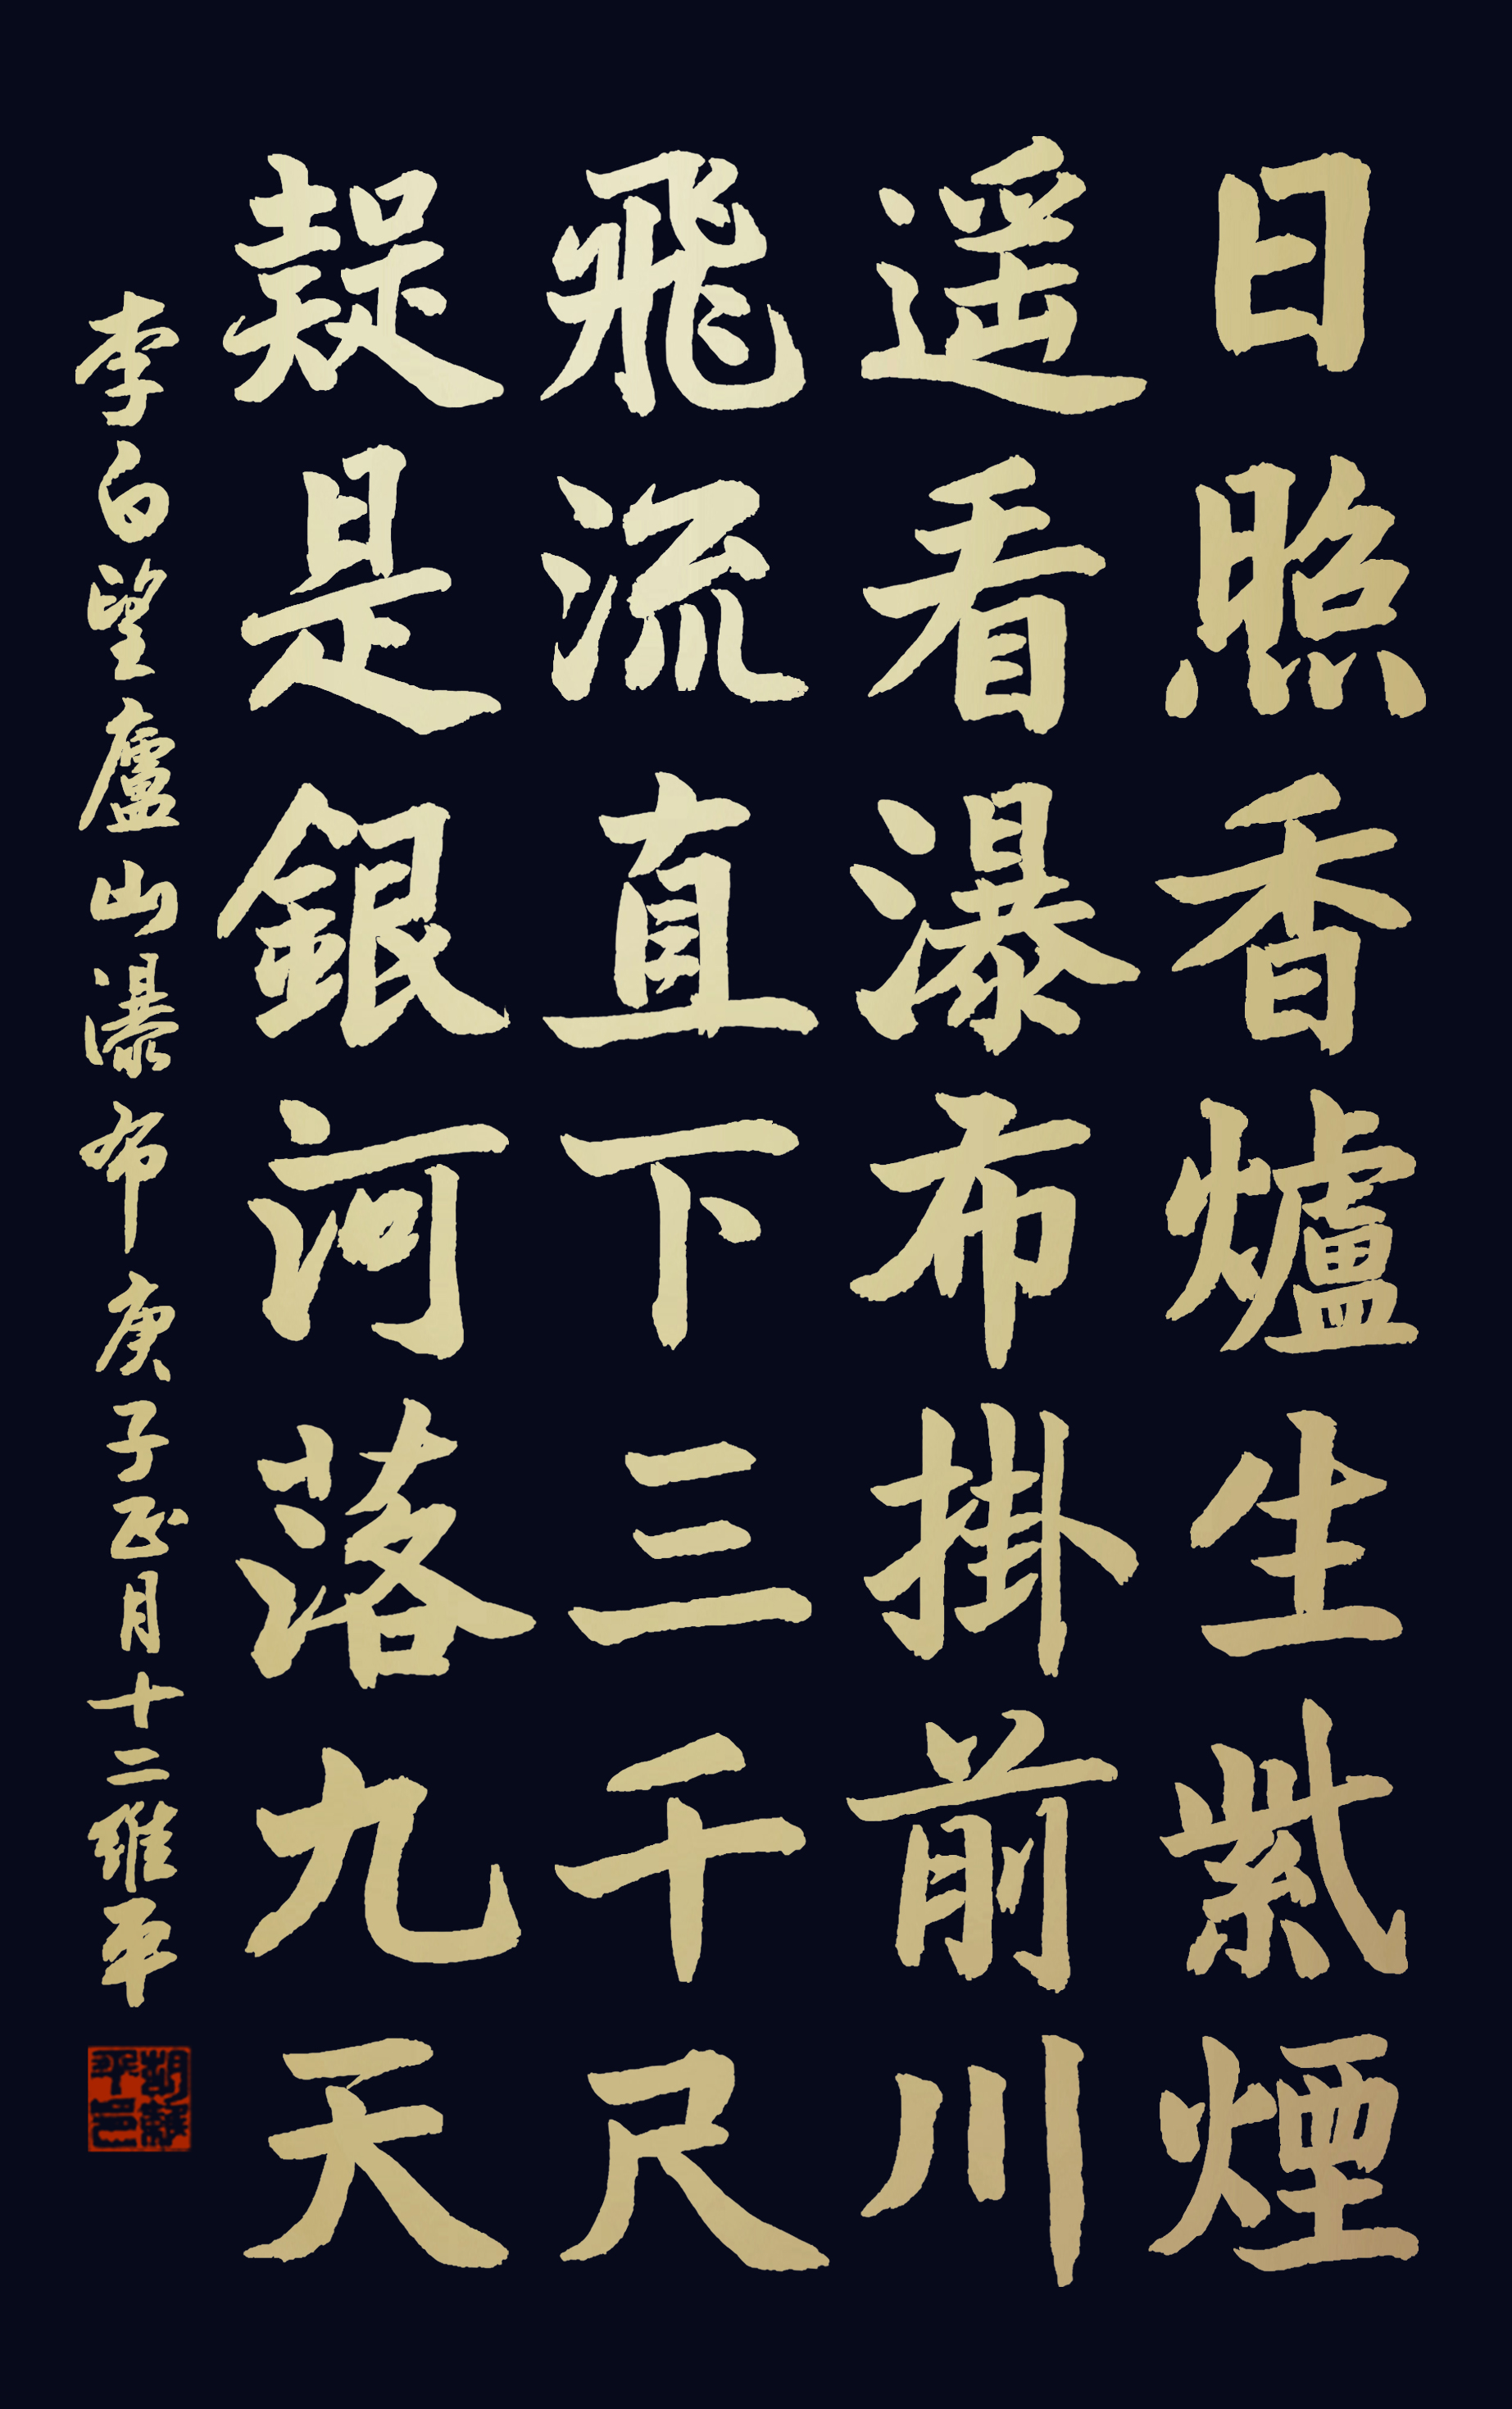 日照香爐生紫煙
遥看瀑布掛前川
飛流直下三千尺
疑是銀河落九天
李白望廬山瀑布庚子五月十二維平